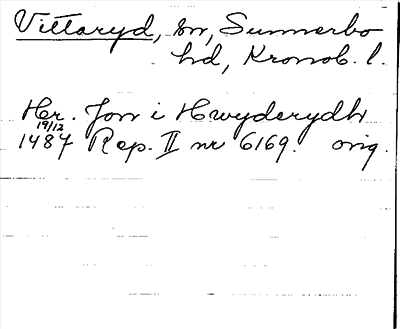 Vittaryd, sn, Sunnerbo
hd, Kronob. l.
Her. Jon i Hwyderydh
19/12
1487 Rep. II nr 6169. orig.